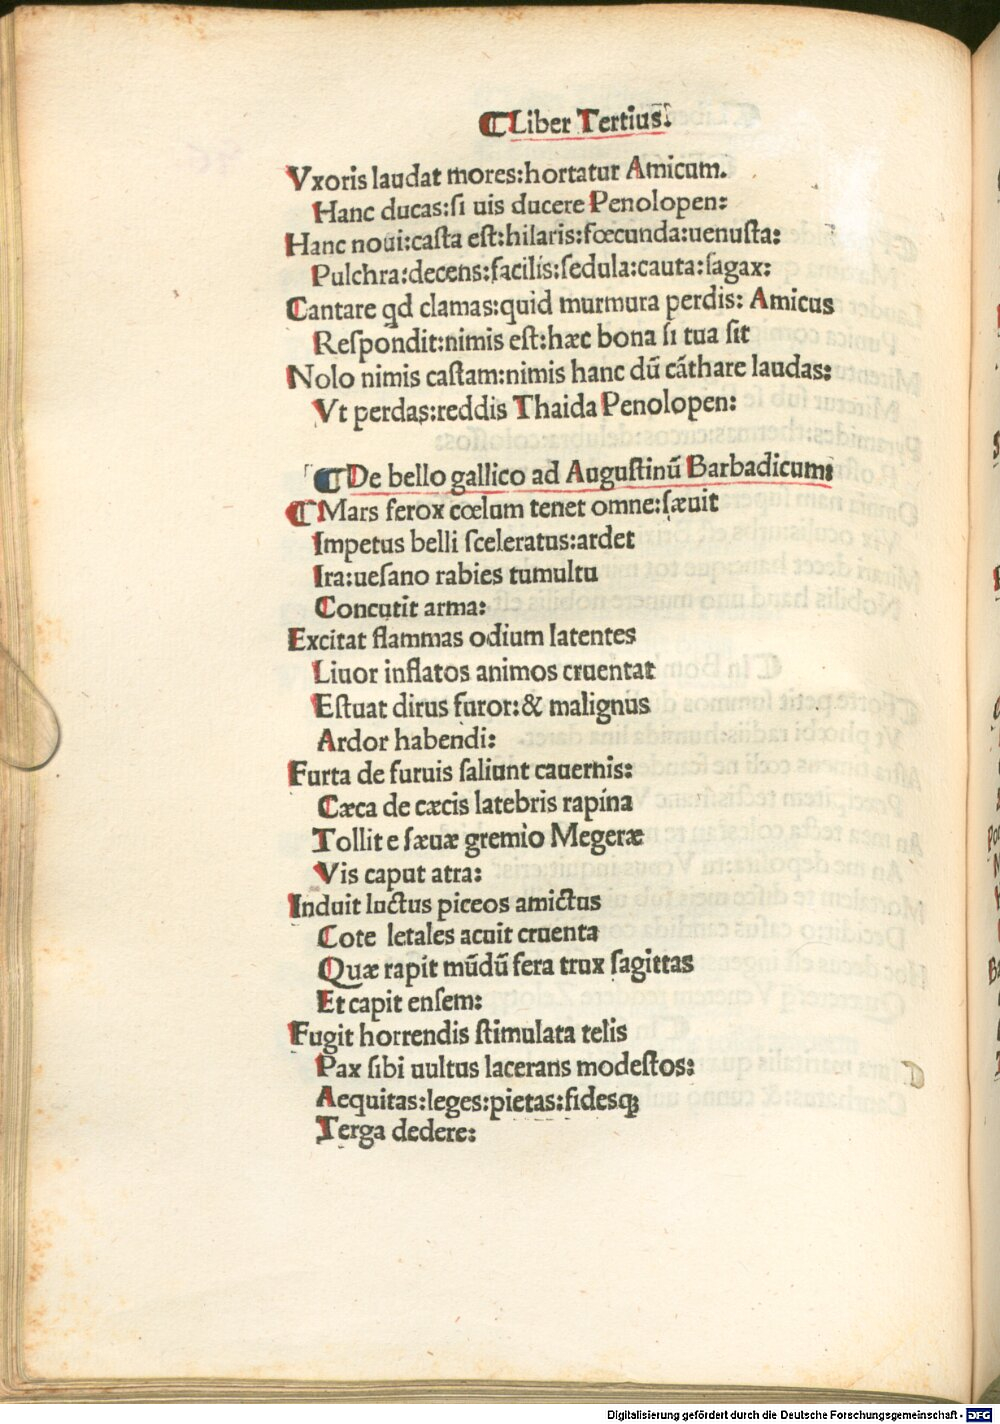 ¶Liber Tertius.
Vxoris laudat mores:hortatur Amicum.
Hanc ducas:si uis ducere Penolopen:
Hanc noui:casta est:hilaris:fœcunda:uenusta:
Pulchra:decens:facilis:sedula:cauta:sagax:
Cantare qd clamas:quid murmura perdis: Amicus
Respondit:nimis est:hæc bona si tua sit
Nolo nimis castam:nimis hanc dū cāthare laudas:
Vt perdas:reddis Thaida Penolopen:
¶De bello gallico ad Augustinū Barbadicum:
¶Mars ferox cœlum tenet omne:sæuit
Impetus belli sceleratus:ardet
Ira:uesano rabies tumultu
Concutit arma:
Excitat flammas odium latentes
Liuor inflatos animos cruentat
Estuat dirus furor:& malignus
Ardor habendi:
Furta de furuis saliunt cauernis:
Cæca de cæcis latebris rapina
Tollit e sæuæ gremio Megeræ
Vis caput atra:
Induit luctus piceos amictus
Cote letales acuit cruenta
Quæ rapit mūdū fera trux sagittas
Et capit ensem:
Fugit horrendis stimulata telis
Pax sibi uultus lacerans modestos:
Aequitas:leges:pietas:fidesq;
Terga dedere:
Digitalisierung gefördert durch die Deutsche Forschungsgemeinschaft - DFG